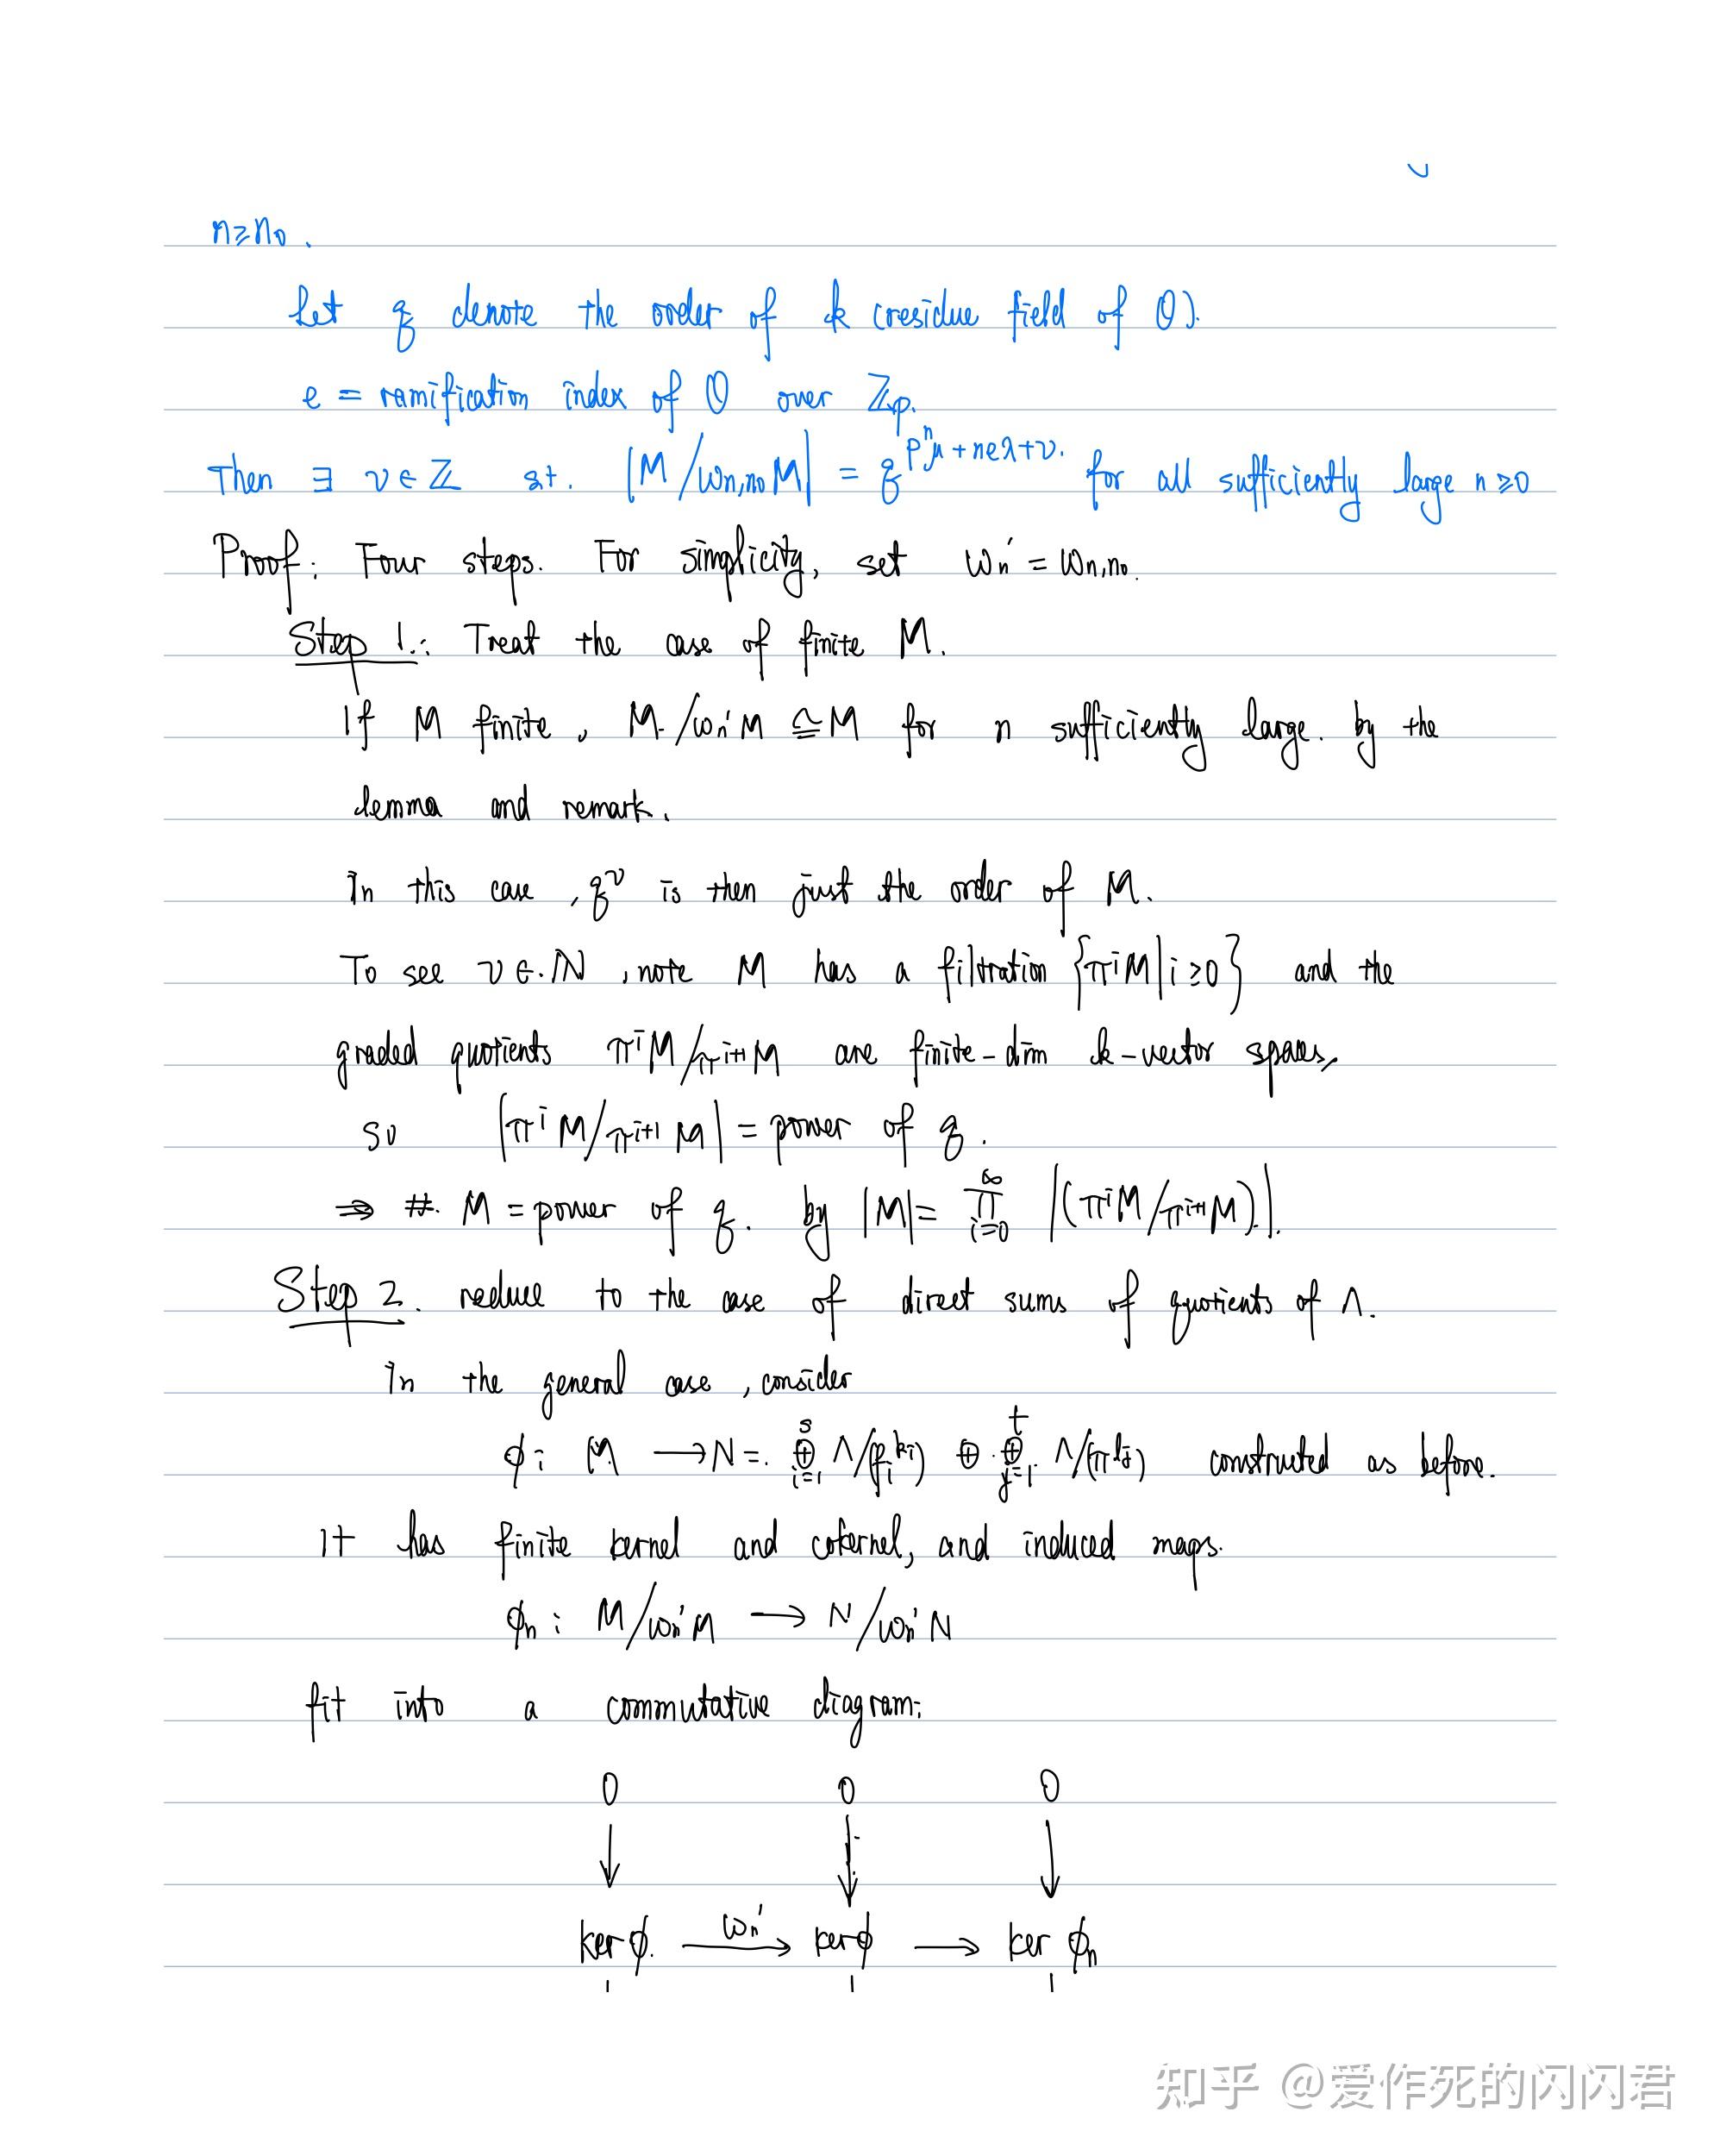 n≥n₀.
Let q denote the order of k (residue field of O).
e = ramification index of O over ℤp.
Then ∃ ν∈ℤ s.t. |M/ωn,n₀M| = q^{pⁿμ+neλ+ν}. for all sufficiently large n≥0
Proof: Four steps. For simplicity, set ωn' = ωn,n₀.
Step 1.: Treat the case of finite M.
If M finite, M/ωn'M ≅ M for n sufficiently large. by the
lemma and remark.
In this case, q^ν is then just the order of M.
To see ν∈ℕ, note M has a filtration {πⁱM | i≥0} and the
graded quotients πⁱM/πⁱ⁺¹M are finite-dim k-vector spaces,
so |πⁱM/πⁱ⁺¹M| = power of q.
⇒ #. M = power of q. by |M| = ∏_{i=0}^{∞} |(πⁱM/πⁱ⁺¹M)|.
Step 2. reduce to the case of direct sums of quotients of Λ.
In the general case, consider
φ: M ⟶ N = ⊕_{i=1}^{s} Λ/(f_i^{k_i}) ⊕ ⊕_{j=1}^{t} Λ/(π^{l_j}) constructed as before.
It has finite kernel and cokernel, and induced maps.
φn: M/ωn'M ⟶ N/ωn'N
fit into a commutative diagram:
0 0 0
↓ ↓ ↓
ker φ. ⟶^{ωn'} ker φ ⟶ ker φn
知乎 @爱作死的闪闪君